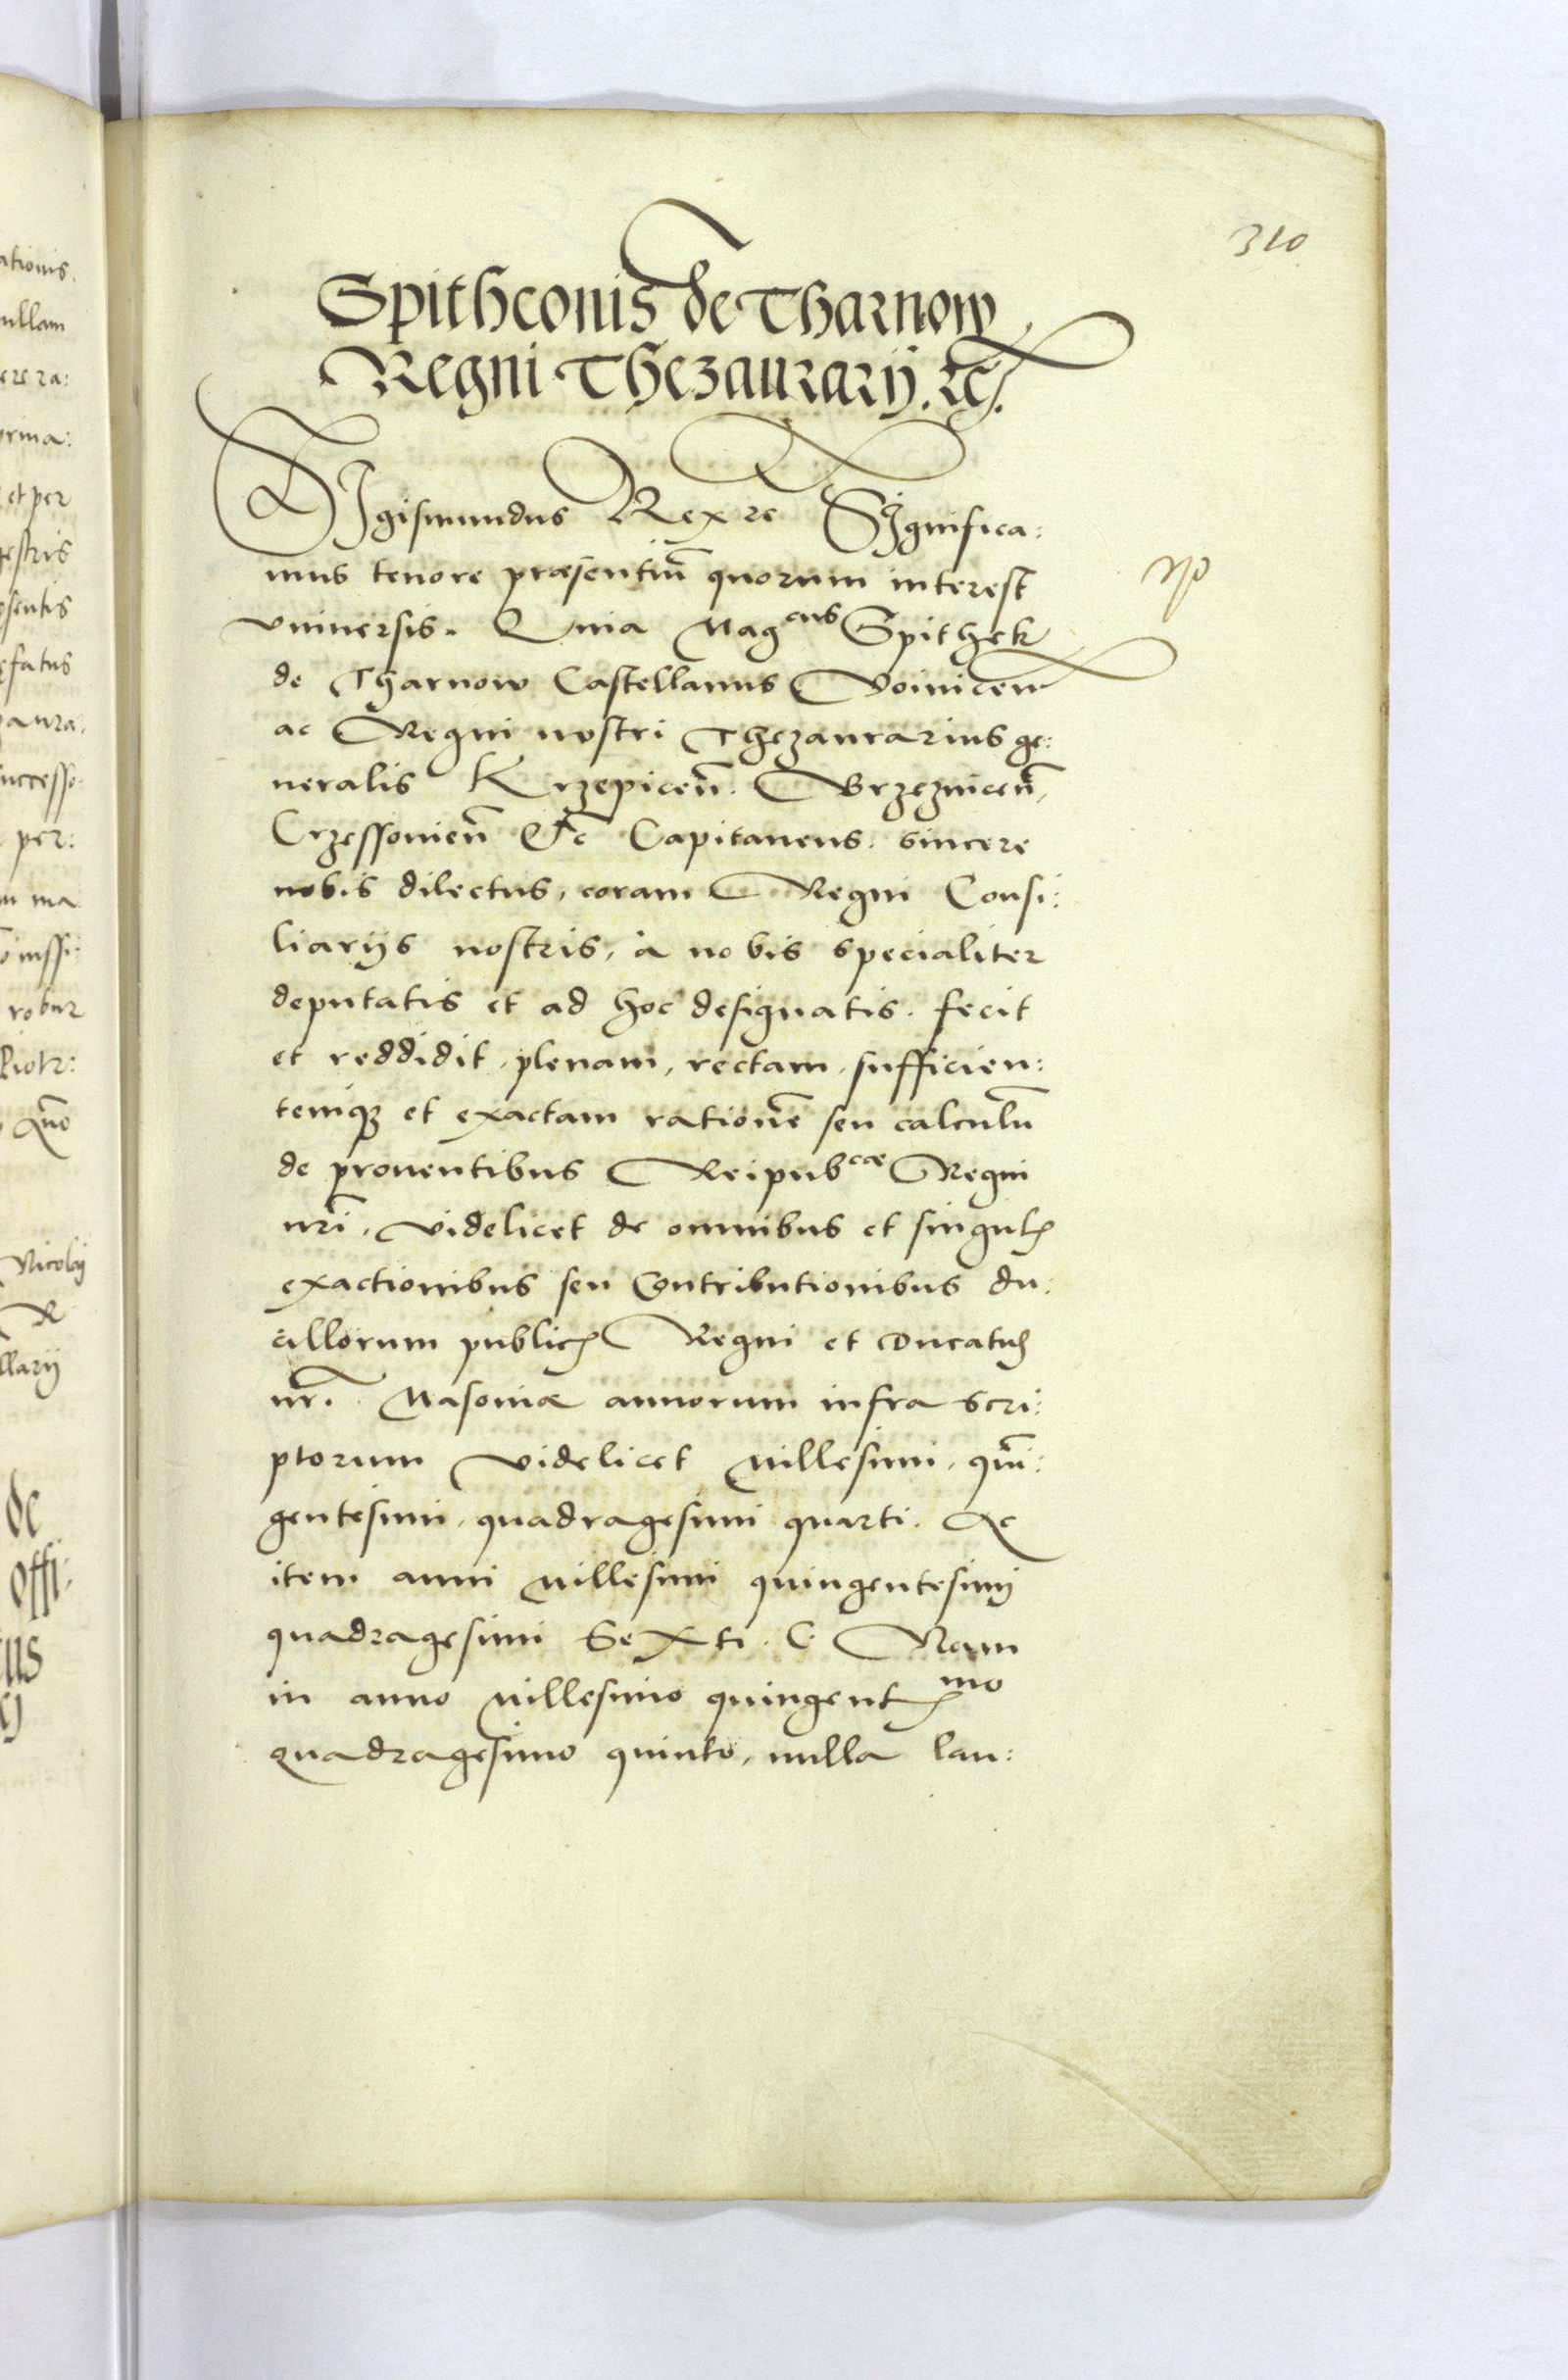 310
Spithconis de Tharnow
Regni Thezaurarij. &c.
SIgismundus Rex &c SIgnifica:
mus tenore præsentiū quorum interest
vniuersis. Quia Mag^cus Spithek
de Tharnow Castellanus Voinicen̄
ac Regni nostri Thezaurarius ge:
neralis Krzepicen̄. Brzeznicen̄,
Crzessouien̄ &c Capitaneus. sincere
nobis dilectus, coram Regni Consi:
liarijs nostris, à nobis specialiter
deputatis et ad hoc designatis. fecit
et reddidit, plenam, rectam, sufficien:
temqꝫ et exactam rationē seu calculū
de prouentibus Reipub^cae Regni
nr̄i, videlicet de omnibus et singulꝭ
exactionibus seu Contributionibus du:
cillorum publicꝭ Regni et Ducatuꝭ
nr̄i. Masoviæ annorum infra scri:
ptorum videlicet Millesimi, qūi:
gentesimi, quadragesimi quarti. Ac
item anni Millesimi quingentesimj
quadragesimi Sexti. C. Nam
in anno Millesimo quingentꝭ^mo
quadragesimo quinto, nulla lau:
ationis.
nullam
et per
Nicolaj
de
offi: